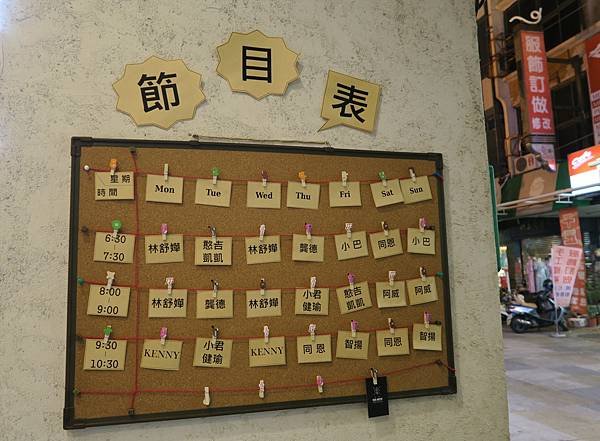 節目表
星期
時間
Mon
Tue
Wed
Thu
Fri
Sat
Sun
6:30
|
7:30
林舒嬅
憨吉
凱凱
林舒嬅
龔德
小巴
同恩
小巴
8:00
|
9:00
林舒嬅
龔德
林舒嬅
小君
健瑜
憨吉
凱凱
阿威
阿威
9:30
|
10:30
KENNY
小君
健瑜
KENNY
同恩
智揚
同恩
智揚
服飾訂做
修改